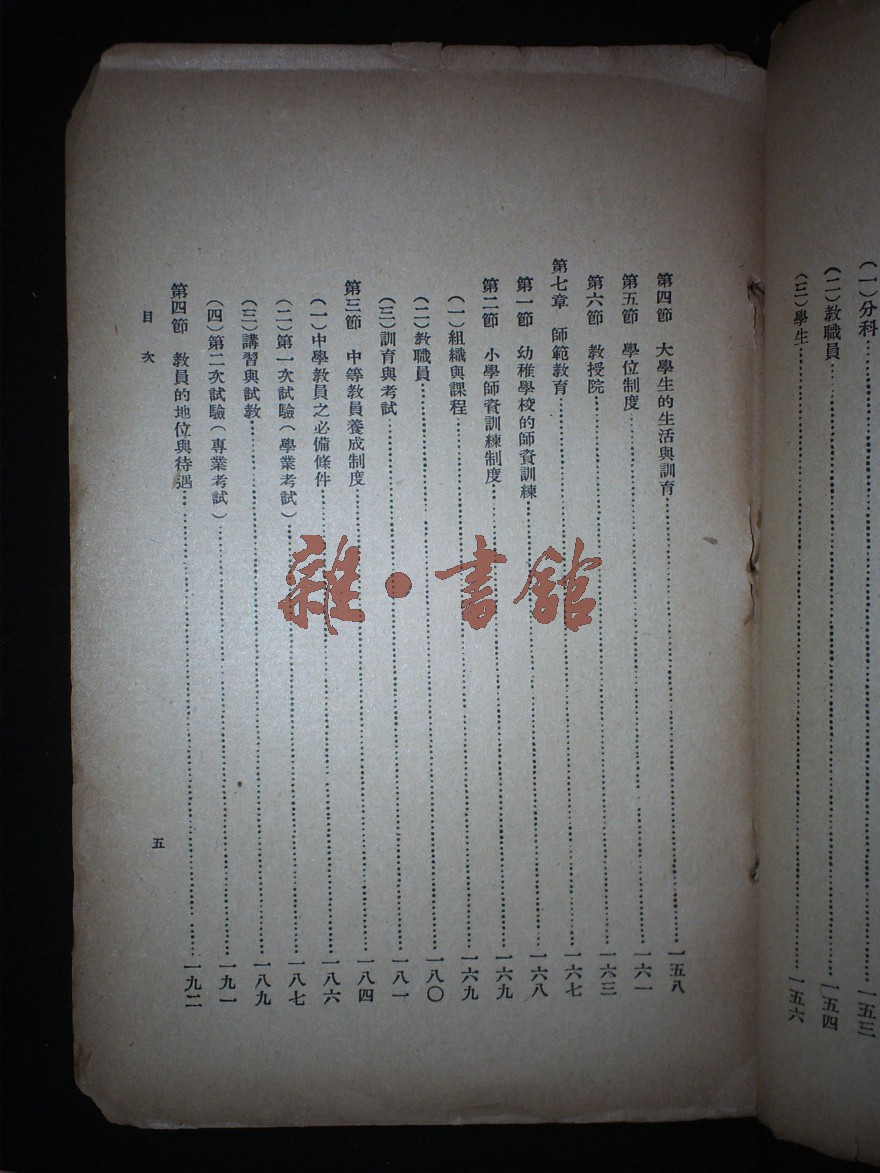 (一)分科……一五三
(二)教職員……一五四
(三)學生……一五六
第四節 大學生的生活與訓育……一五八
第五節 學位制度……一六一
第六節 教授院……一六三
第七章 師範教育……一六七
第一節 幼稚學校的師資訓練……一六八
第二節 小學師資訓練制度……一六九
(一)組織與課程……一六九
(二)教職員……一八〇
(三)訓育與考試……一八一
第三節 中等教員養成制度……一八四
(一)中學教員之必備條件……一八六
(二)第一次試驗(學業考試)……一八七
(三)講習與試教……一八九
(四)第二次試驗(專業考試)……一九一
第四節 教員的地位與待遇……一九二
目次
五
雜·書館